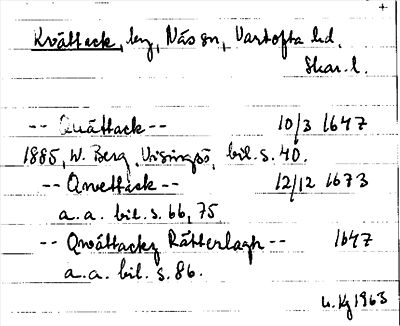 Kvättack, by, Näs sn, Vartofta hd,
Skar. l.
-- Quättack -- 10/3 1647
1885, W. Berg, Visingsö, bil. s. 40.
-- Qvettack -- 12/12 1673
a.a. bil. s. 66, 75
-- Qwättacky Rätterlagh -- 1647
a.a. bil. s. 86.
1963